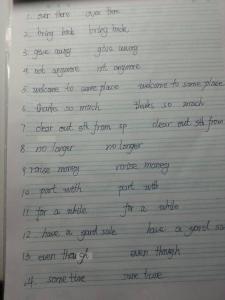 1. over there over there
2. bring back bring back
3. give away give away
4. not anymore not anymore
5. welcome to some place welcome to some place
6. thanks so much thanks so much
7. clear out sth from sp clear out sth from
8 no longer no longer
9. raise money raise money
10. part with part with
11. for a while for a while
12. have a yard sale have a yard sa
13. even though even though
14. some time some time